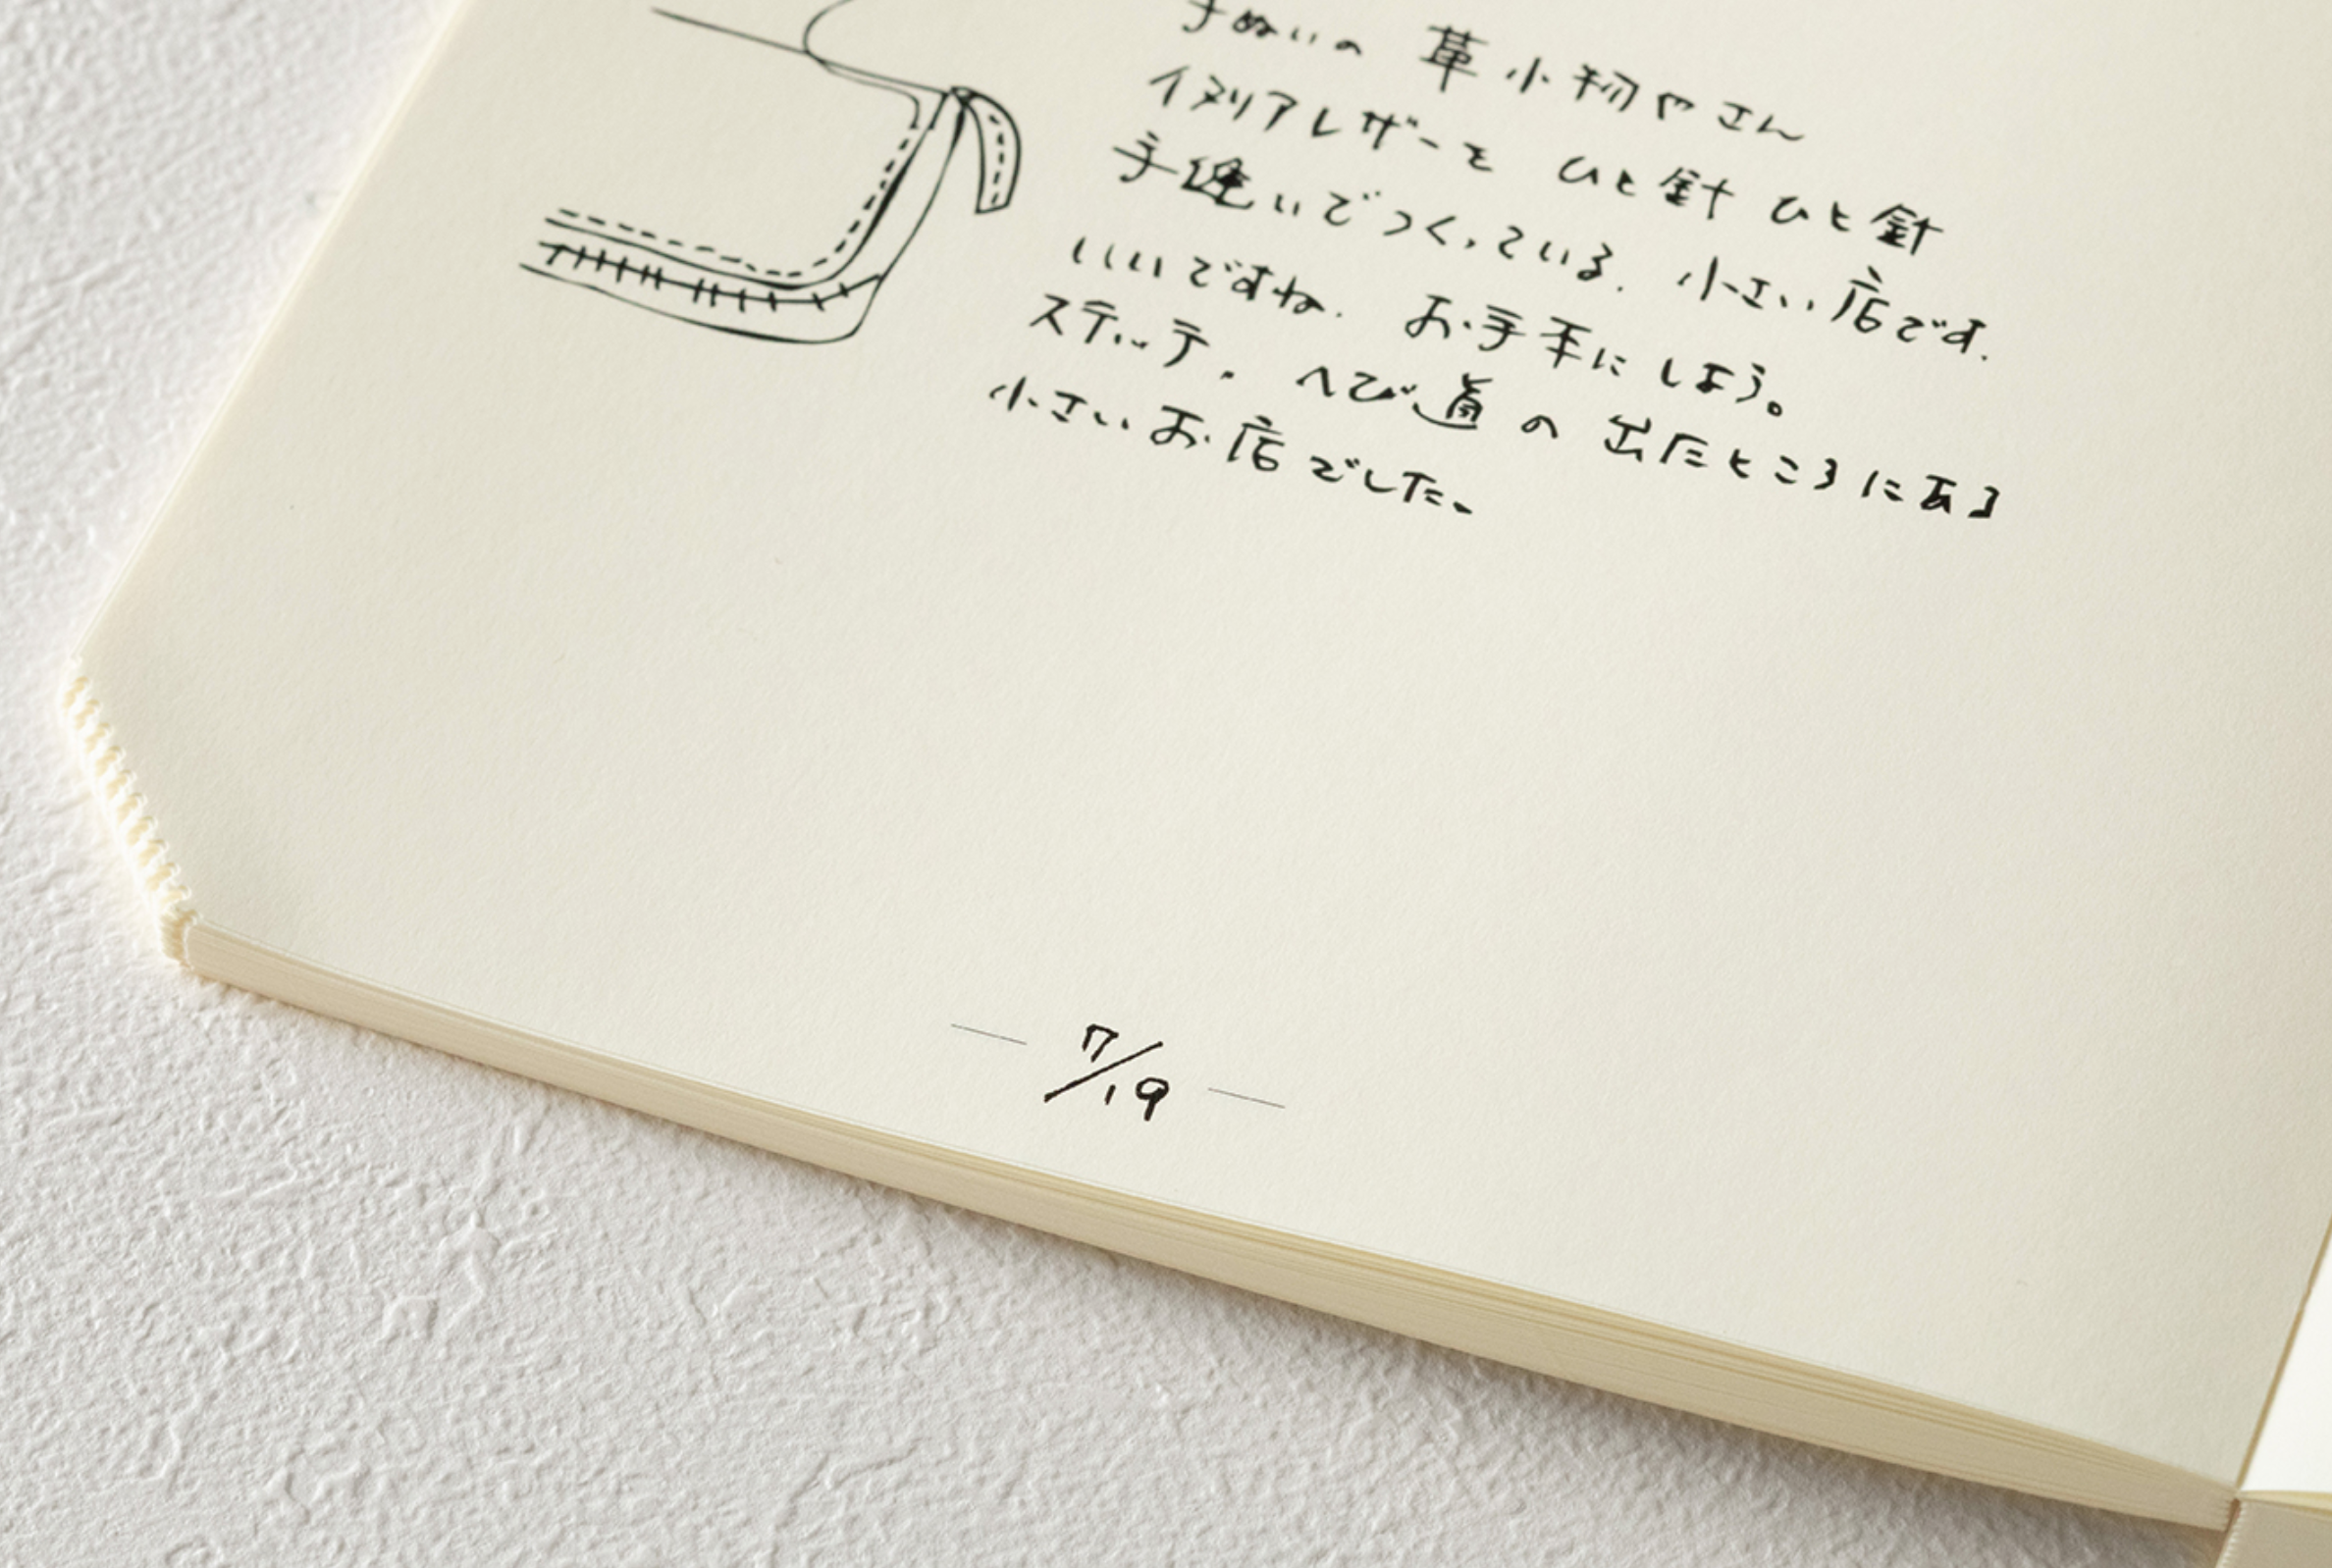 手ぬいの 革小物やさん
イタリアレザーを ひと針 ひと針
手縫いでつくっている. 小さい店です.
いいですね. お手本にしよう。
ステッチ. へび道の出たところにある
小さいお店でした、
7/19